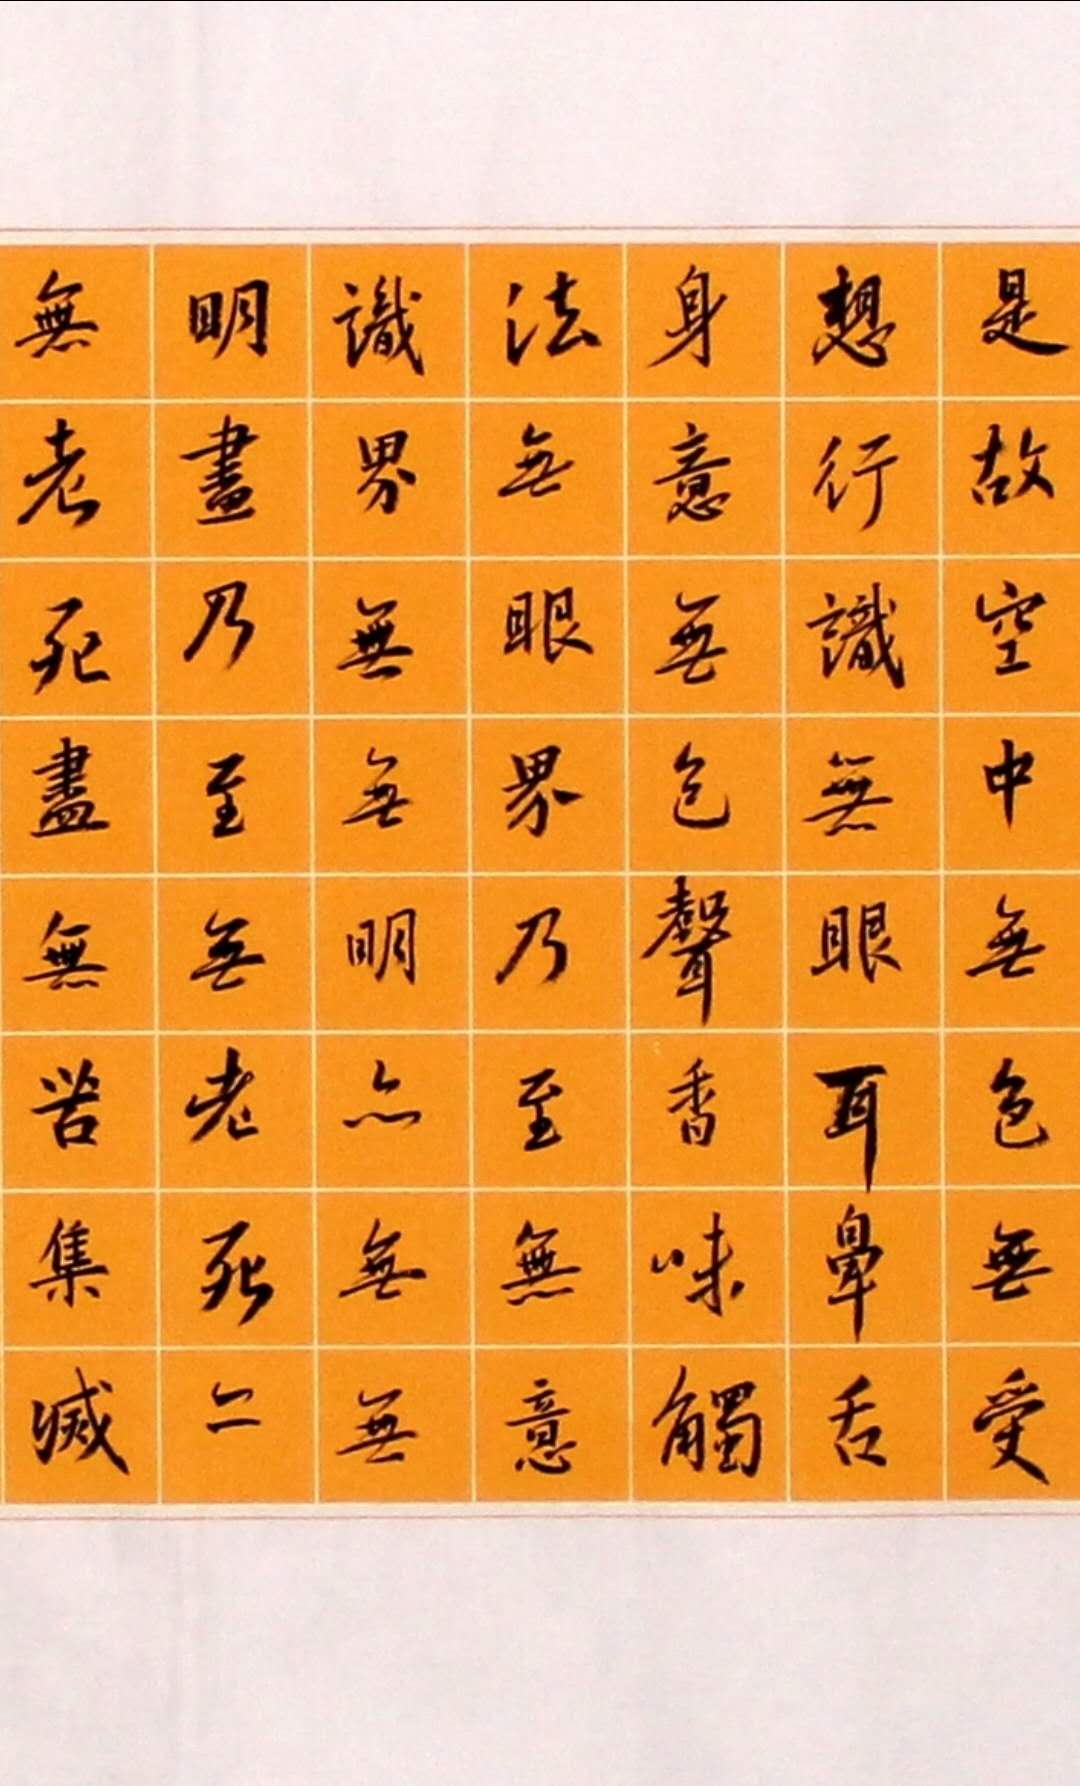 是故空中無色無受
想行識無眼耳鼻舌
身意無色聲香味觸
法無眼界乃至無意
識界無無明亦無無
明盡乃至無老死亦
無老死盡無苦集滅